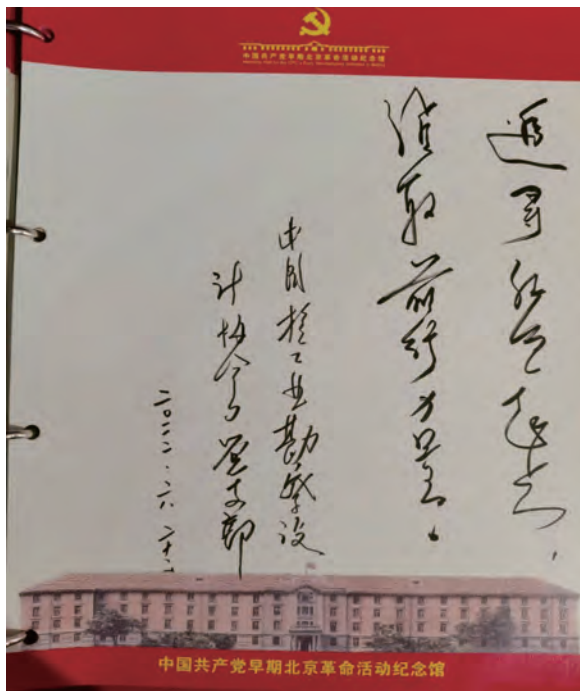 中国共产党早期北京革命活动纪念馆
追寻红色起点，
汲取前行力量。
中国核工业勘察设
计协会党支部
二〇二二.六.二十
中国共产党早期北京革命活动纪念馆